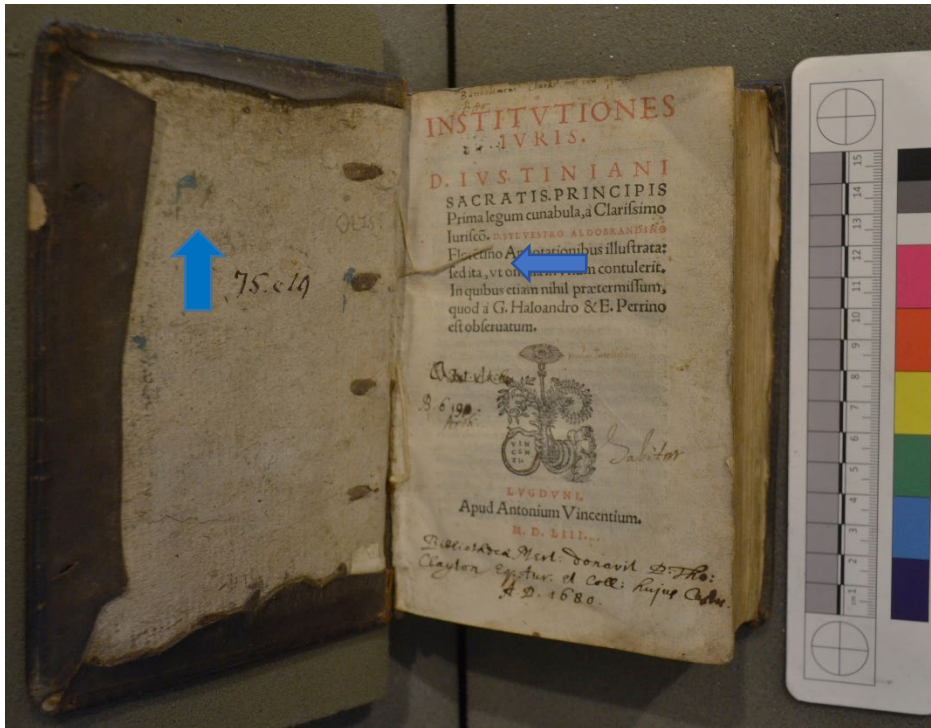 75. c 19
INSTITVTIONES
IVRIS.
D. IVSTINIANI
SACRATIS. PRINCIPIS
Prima legum cunabula, à Clarissimo
Iuriscō. D. SYLVESTRO ALDOBRANDINO
Floretino Annotationibus illustrata:
sed ita, vt contulerit.
In quibus etiam nihil prætermissum,
quod à G. Haloandro & E. Perrino
est obseruatum.
B. 6.
Arch.
VIN
CEN
TI.
Habitor
LVGDVNI,
Apud Antonium Vincentium.
M. D. LIII.
Bibliothecæ Mert: donavit D: Tho:
Clayton Eq; Aur. et Coll: hujus Custos.
A D. 1680.
15
14
13
12
11
10
9
8
7
6
5
4
3
2
cm 1